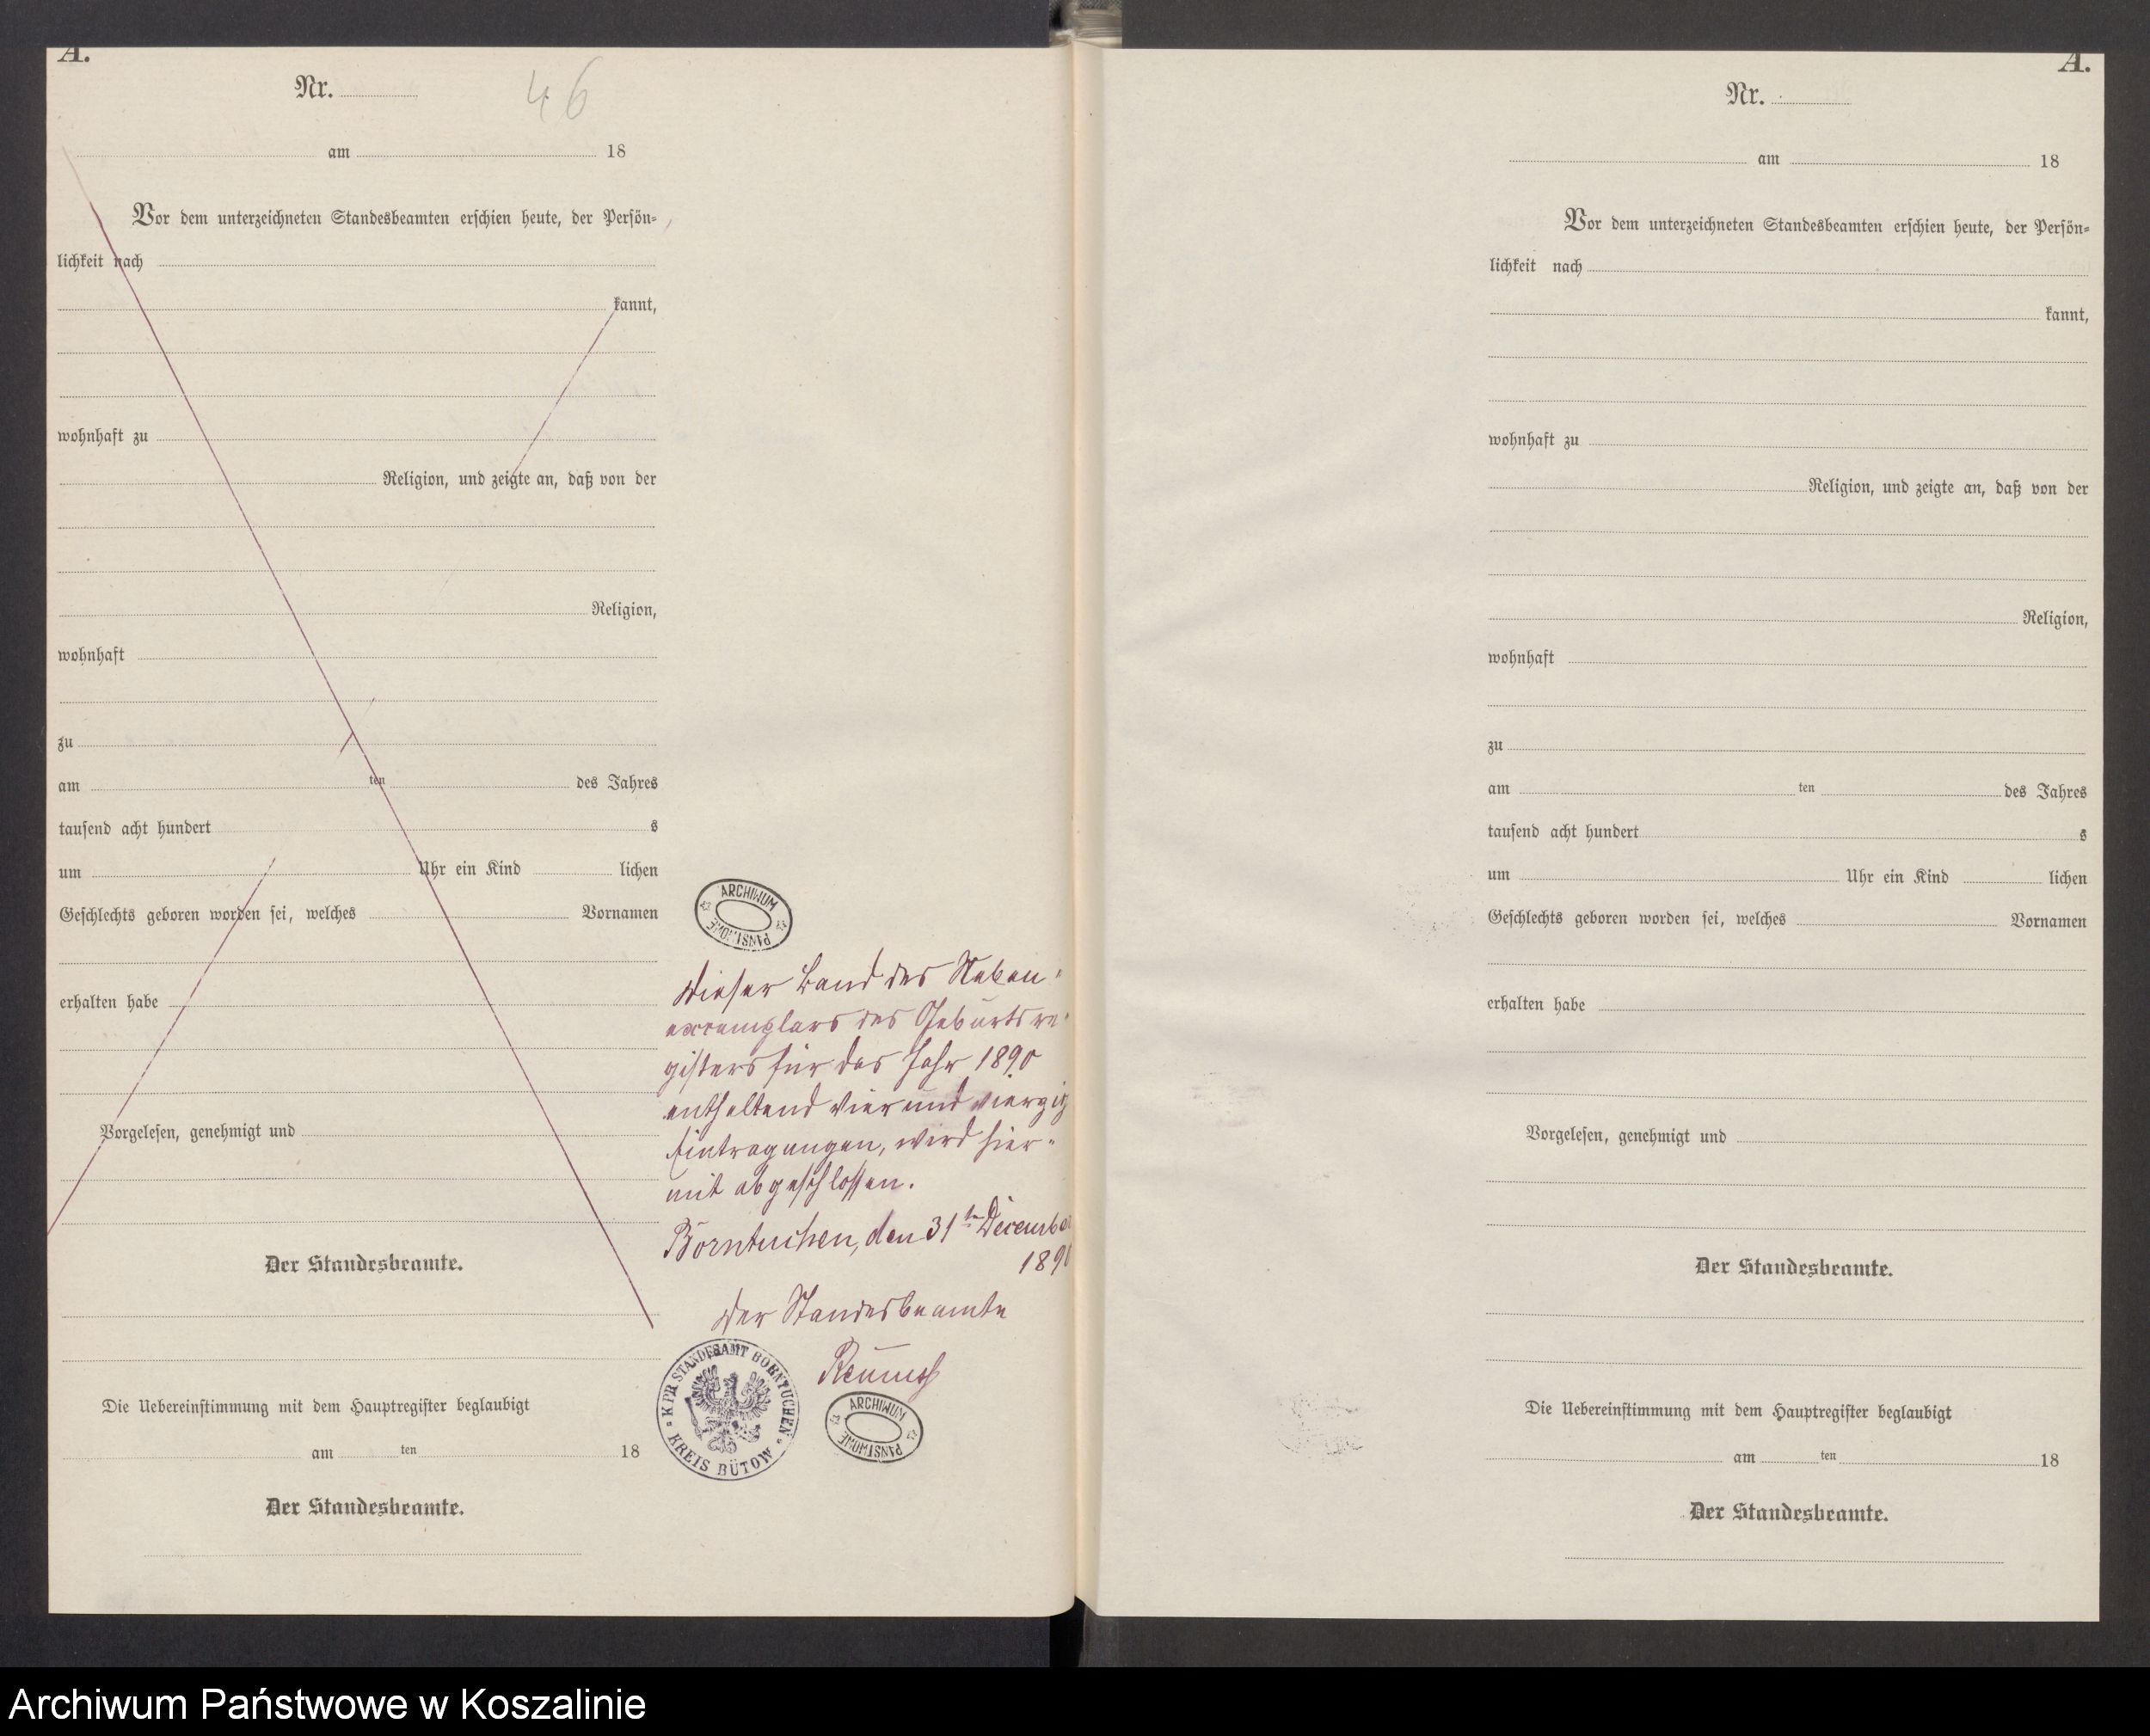 A.
Nr.
46
am 18
Vor dem unterzeichneten Standesbeamten erschien heute, der Persön-
lichkeit nach
kannt,
wohnhaft zu
Religion, und zeigte an, daß von der
Religion,
wohnhaft
zu
am ten des Jahres
tausend acht hundert s
um Uhr ein Kind lichen
Geschlechts geboren worden sei, welches Vornamen
erhalten habe
Vorgelesen, genehmigt und
Der Standesbeamte.
Die Uebereinstimmung mit dem Hauptregister beglaubigt
am ten 18
Der Standesbeamte.
ARCHIWUM PAŃSTWOWE
Dieser Band des Neben-
exemplars des Geburtsre-
gisters für das Jahr 1890
enthaltend vier und vierzig
Eintragungen, wird hier-
mit abgeschlossen.
Borntuchen, den 31ten December
1890
Der Standesbeamte
KPR STANDESAMT BORNTUCHEN
KREIS BÜTOW
ARCHIWUM PAŃSTWOWE
A.
Nr.
am 18
Vor dem unterzeichneten Standesbeamten erschien heute, der Persön-
lichkeit nach
kannt,
wohnhaft zu
Religion, und zeigte an, daß von der
Religion,
wohnhaft
zu
am ten des Jahres
tausend acht hundert s
um Uhr ein Kind lichen
Geschlechts geboren worden sei, welches Vornamen
erhalten habe
Vorgelesen, genehmigt und
Der Standesbeamte.
Die Uebereinstimmung mit dem Hauptregister beglaubigt
am ten 18
Der Standesbeamte.
Archiwum Państwowe w Koszalinie